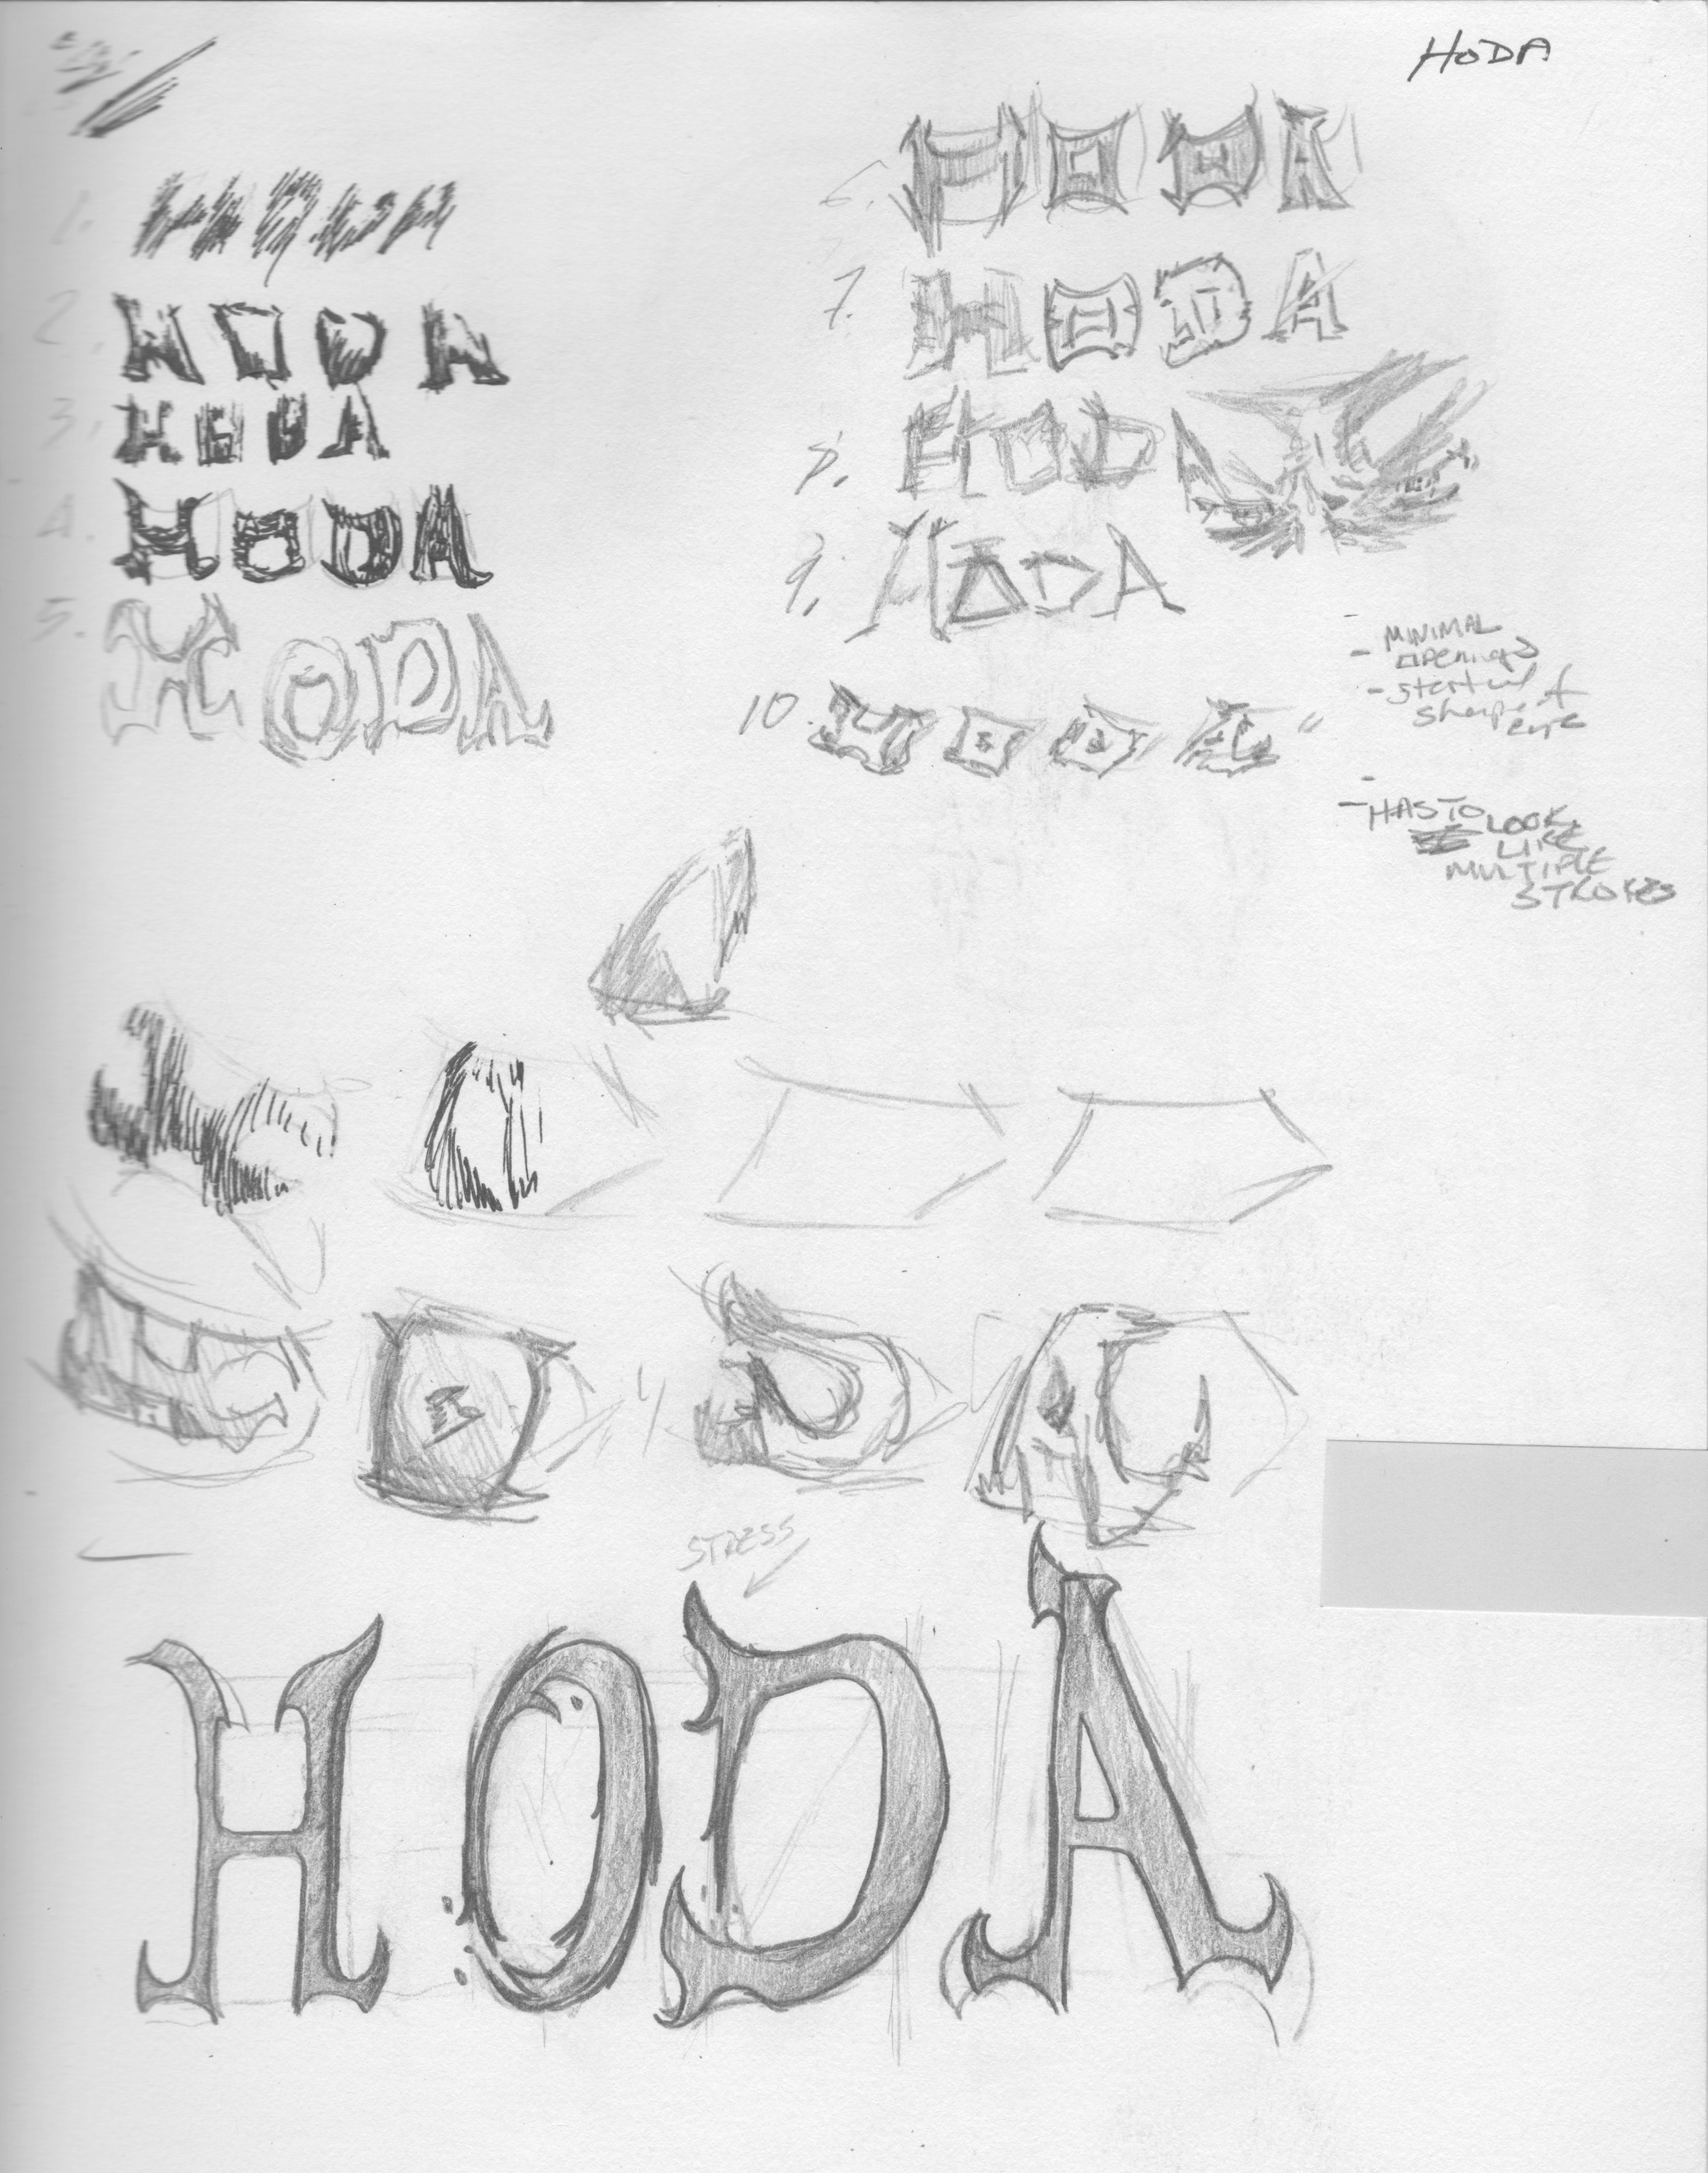 HODA
1. HODA
2. HODA
3. HODA
4. HODA
5. HODA
6. HODA
7. HODA
8. HODA
9. HODA
10. HODA
- MINIMAL
openings
sharp
- HAS TO LOOK
LIKE
MULTIPLE
STROKES
STRESS
HODA